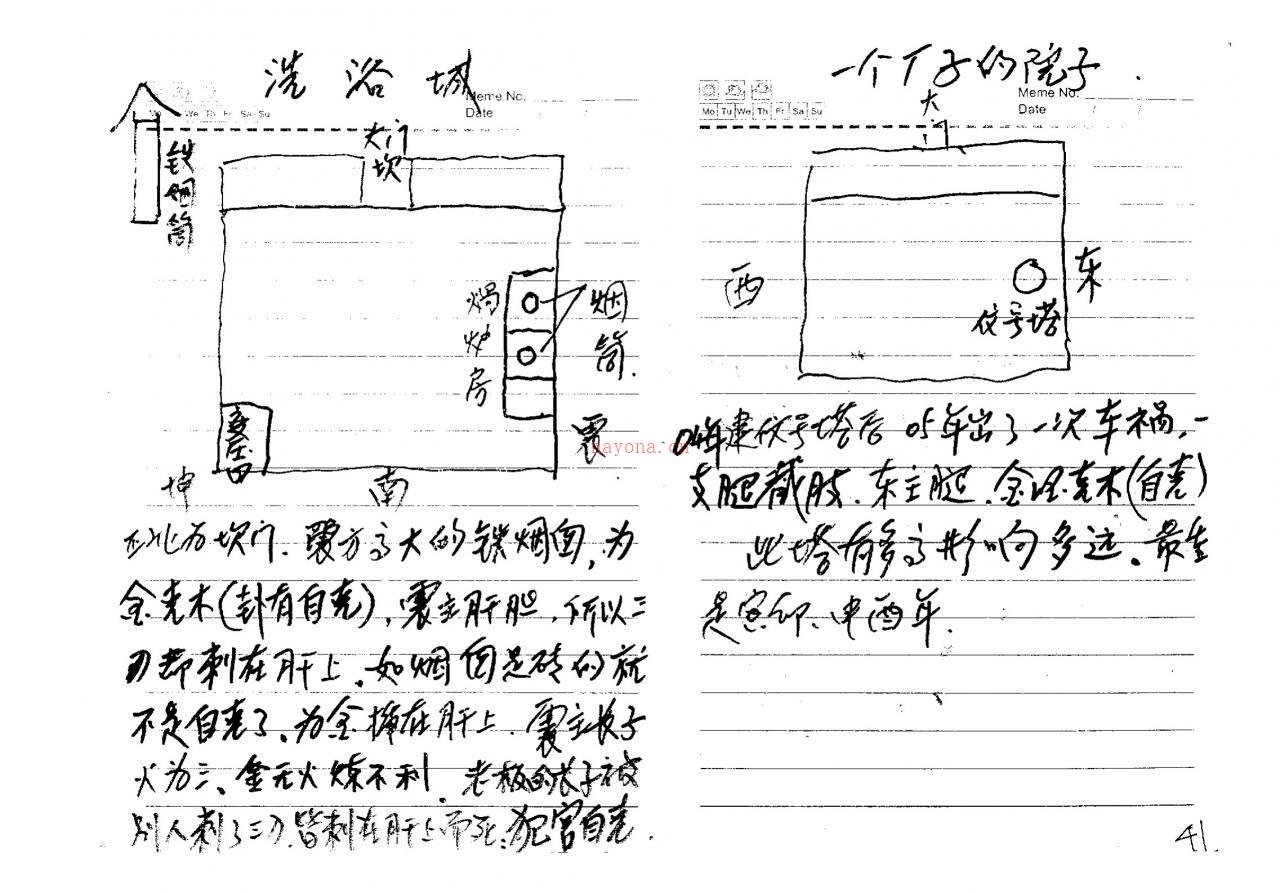 洗浴城
Meme No.
We Th Fr Sa Su
Date
铁烟筒
大门
坎
锅炉房
烟筒.
震
坤
南
正北为坎门、震方高大的铁烟囱，为
金克木(卦有自克)，震主肝胆、所以三
刀却刺在肝上、如烟囱是砖的就
不是自克了、为金 在肝上、震主长子
火为三、金无火炼不利、老板的长子被
别人刺了三刀皆刺在肝上而死、犯宫自克.
一个丁子的院子.
Meme No.
Mo Tu We Th Fr Sa Su
Date
大门
西
东
信号塔
04年建信号塔后 05年出了一次车祸、一
支腿截肢、东主腿、金 克木(自克)
此塔有多高影响多远、最 
是寅卯、申酉年.
nayona.cn
41.